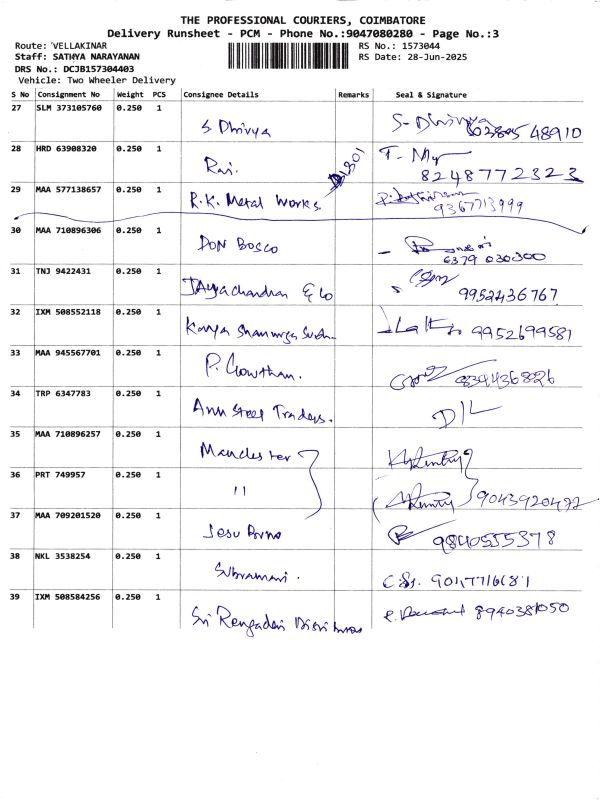 THE PROFESSIONAL COURIERS, COIMBATORE
Delivery Runsheet - PCM - Phone No.:9047080280 - Page No.:3
Route: VELLAKINAR RS No.: 1573044
Staff: SATHYA NARAYANAN RS Date: 28-Jun-2025
DRS No.: DCJB157304403
Vehicle: Two Wheeler Delivery
S No Consignment No Weight PCS Consignee Details Remarks Seal & Signature
27 SLM 373105760 0.250 1 S Dhivya S- Dhivya 48910
28 HRD 63908320 0.250 1 Rai. 8248772323
29 MAA 577138657 0.250 1 R.K. Metal Works 9367713999
30 MAA 710896306 0.250 1 DON BOSCO 6379 030300
31 TNJ 9422431 0.250 1 Jayachandran & Co 9952436767
32 IXM 508552118 0.250 1 9952699581
33 MAA 945567701 0.250 1 P. Gowthan. 8344436826
34 TRP 6347783 0.250 1 Ann Steel Traders. D/L
35 MAA 710896257 0.250 1 Manchester
36 PRT 749957 0.250 1 11 9043920472
37 MAA 709201520 0.250 1 Jesu 9840555378
38 NKL 3538254 0.250 1 Subramani.
39 IXM 508584256 0.250 1 Sri 8940381050